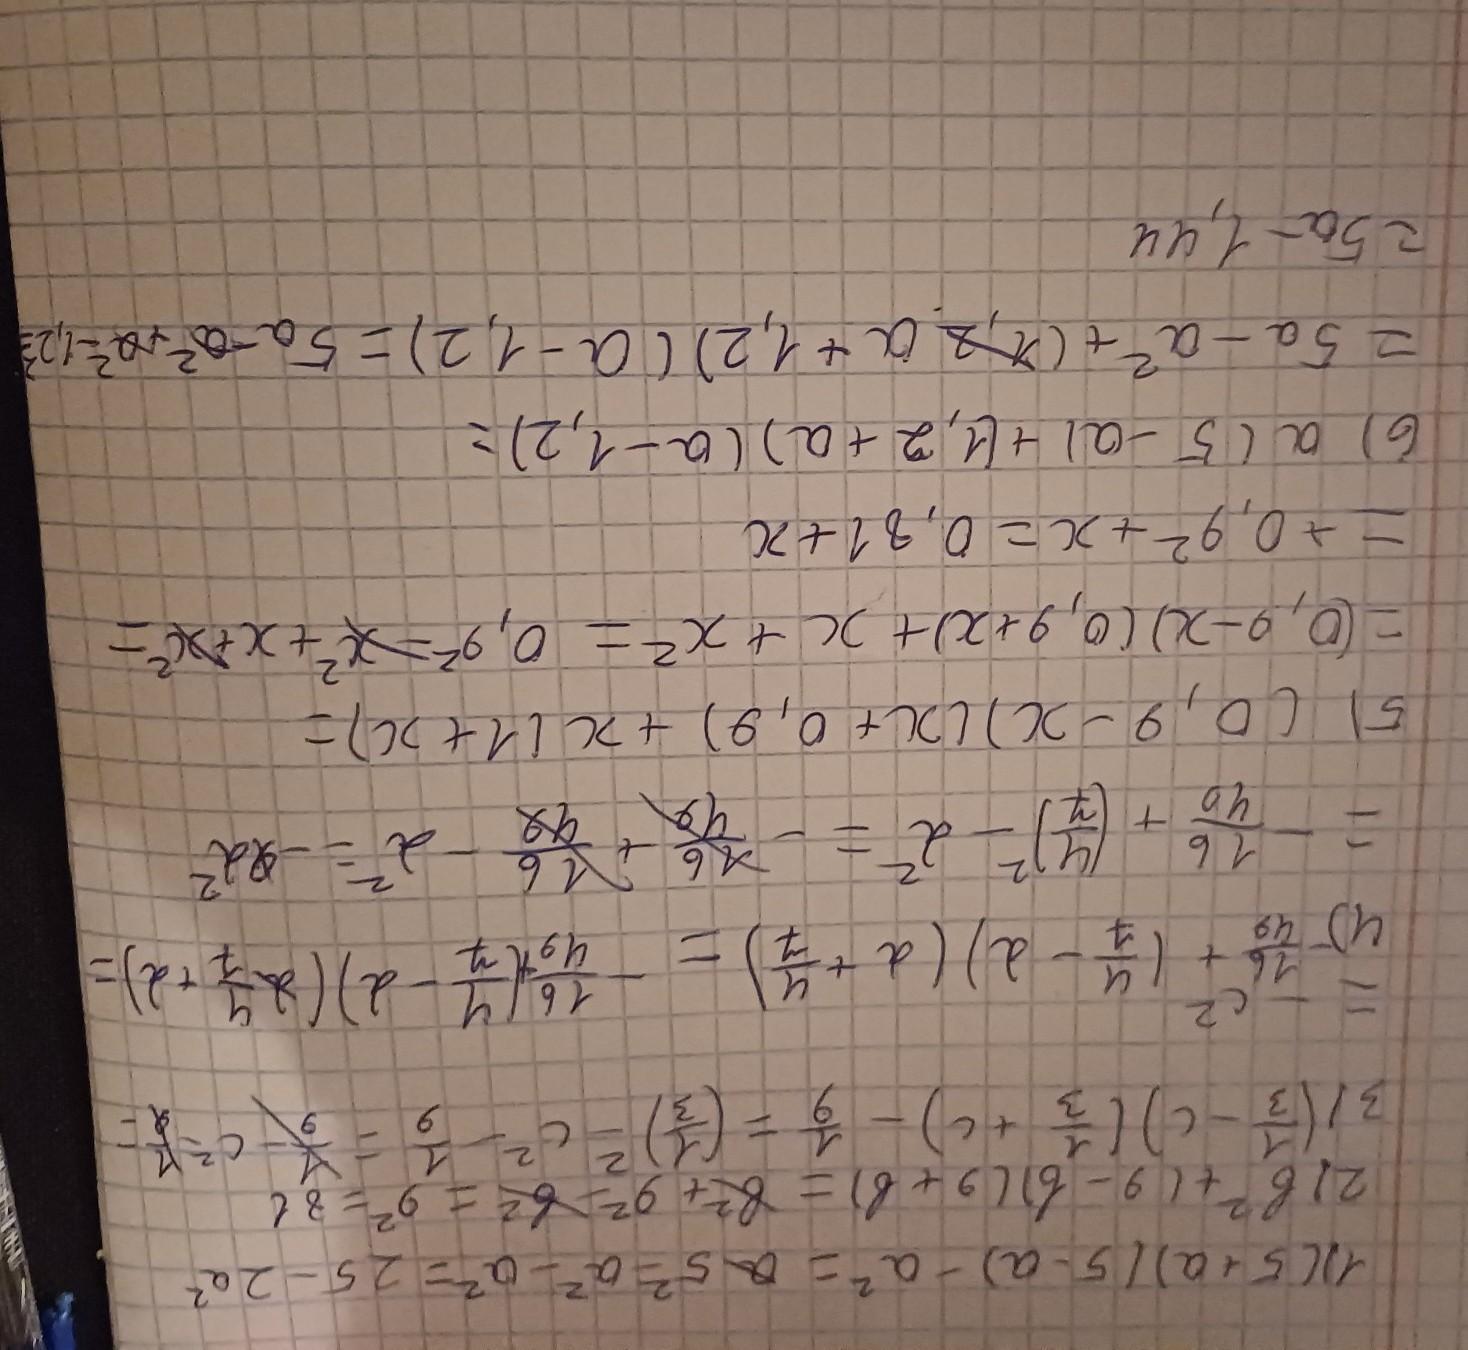 1) (5+a)(5-a)-a²= 5²-a²-a²=25-2a²
2) b²+(9-b)(9+b)=b²+9²-b²=9²=81
3) (1/3-c)(1/3+c)-1/9=(1/3)²-c²-1/9=1/9-c²-1/9=
=-c²
4) -16/49+(4/7-d)(d+4/7)=-16/49+(4/7-d)(4/7+d)=
=-16/49+(4/7)²-d²=-16/49+16/49-d²=-d²
5) (0,9-x)(x+0,9)+x(1+x)=
=(0,9-x)(0,9+x)+x+x²=0,9²-x²+x+x²=
=+0,9²+x=0,81+x
6) a(5-a)+(1,2+a)(a-1,2)=
=5a-a²+(a+1,2)(a-1,2)=5a-a²+a²-1,2²=
=5a-1,44